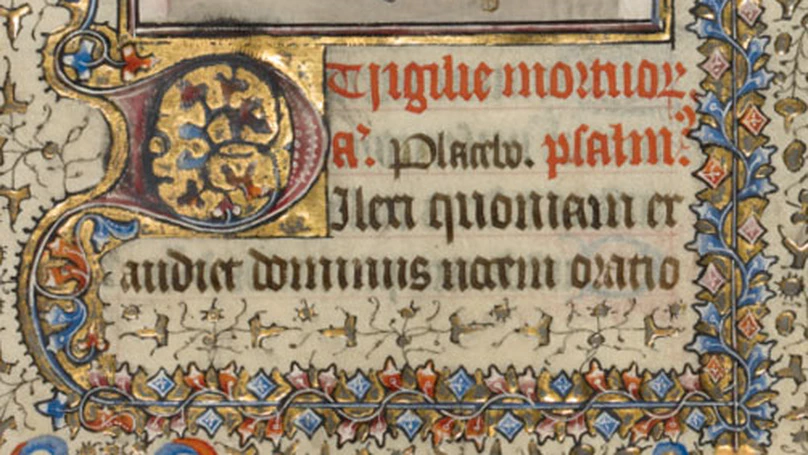 Vigilie mortuoꝝ
a'. Placebo. psalm'
Dilexi quoniam ex
audiet dominus vocem oratio